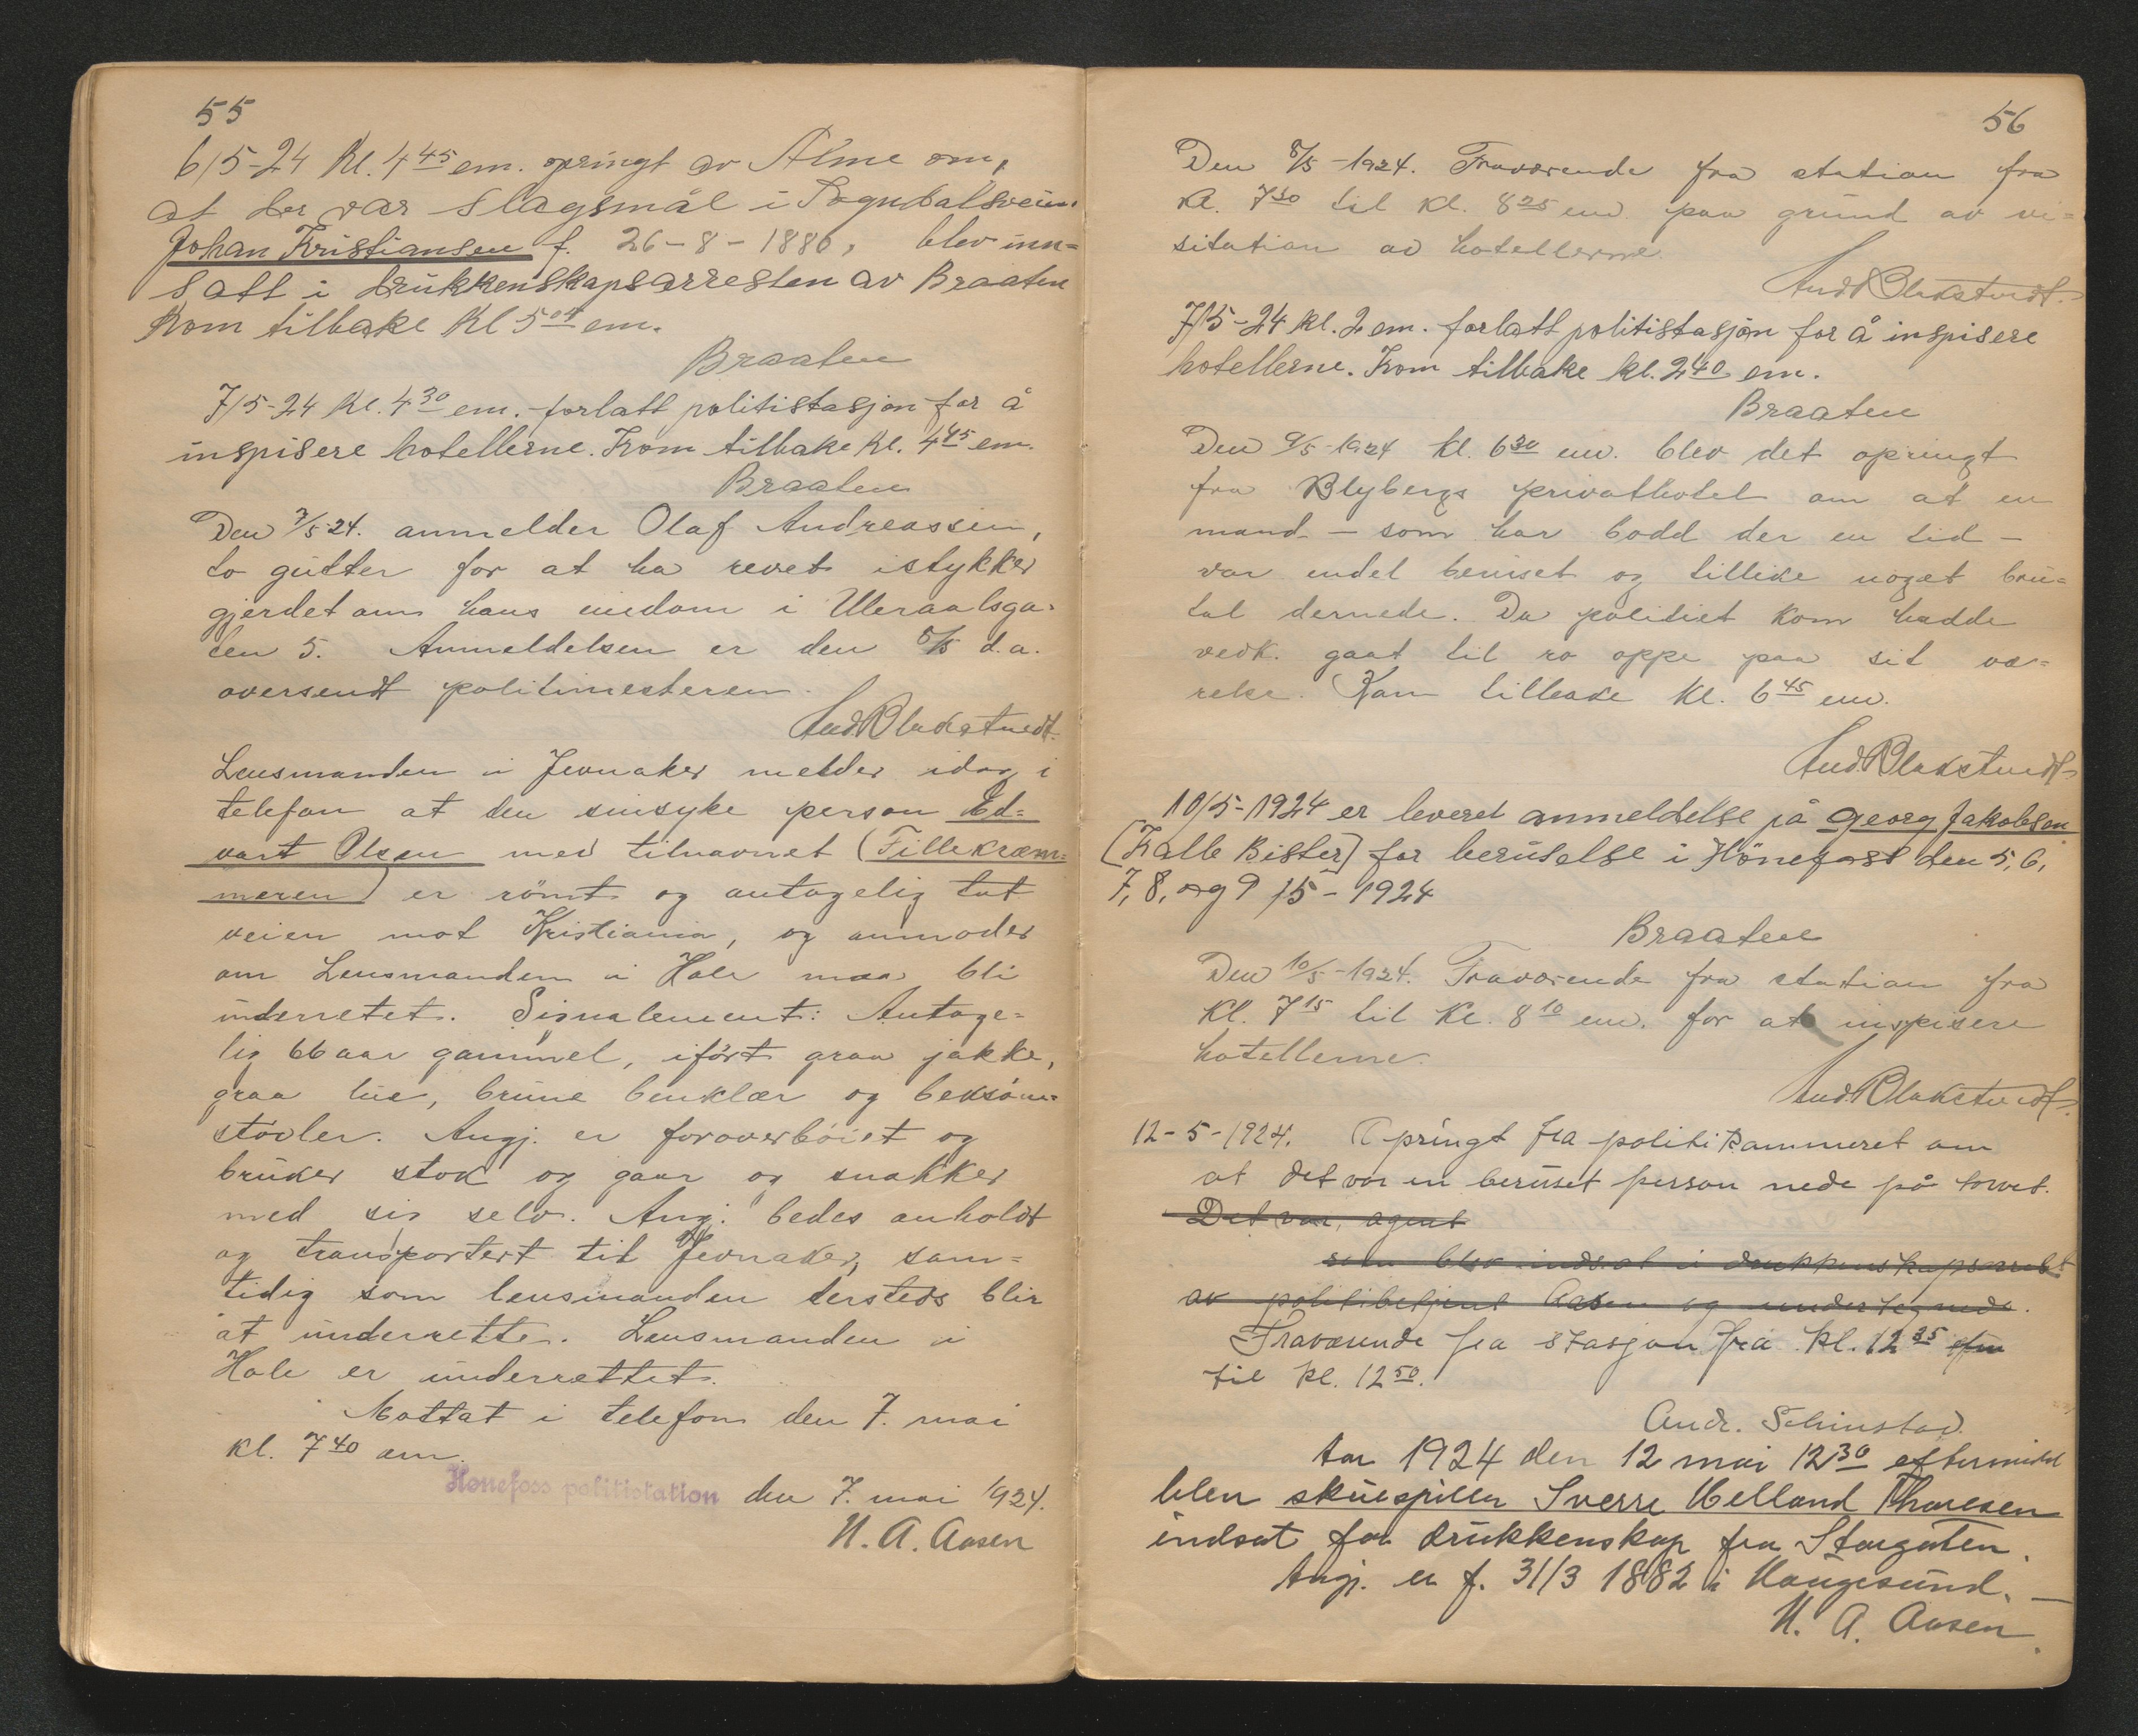 55
6/5-24 Kl. 4 45 em. opringt av Alme om,
at der var slagsmål i Sogndalsveien.
Johan Kristiansen f. 26-8-1886, blev inn=
satt i drukkenskapsarresten av Braaten
Kom tilbake Kl 5 04 em.
Braaten
7/5-24 Kl. 4 30 em. forlatt politistasjon for å
inspisere hotellerne. Kom tilbake kl. 4 45 em.
Braaten
Den 7/5 24. anmelder Olaf Andreassen,
to gutter for at ha revet istykker
gjerdet om hans eiedom i Ulleraalsga=
ten 5. Anmeldelsen er den 8/5 d.a.
oversendt politimesteren.
And. Blakstvedt.
Lensmanden i Jevnaker melder idag i
telefon at den sinsyke person Ed=
vart Olsen med tilnavnet (Fillekræm=
meren) er rømt og antagelig tat
veien mot Kristiania, og anmoder
om Lensmanden i Hole maa bli
underretet. Signalement: Antage=
lig 66 aar gammel, iført graa jakke,
graa lue, brune benklær og beksøm=
støvler. Angj. er foroverbøiet og
bruker stok og gaar og snakker
med sig selv. Angj. bedes anholdt
og transportert til Jevnaker, sam=
tidig som lensmanden dersteds blir
at underrette. Lensmanden i
Hole er underrettet.
Mottat i telefon den 7. mai
kl. 7 40 em.
Hønefoss politistation den 7. mai 1924.
N. A. Aasen
56
Den 8/5-1924. Fraværende fra station fra
Kl. 7 50 til Kl. 8 25 em. paa grund av vi=
sitation av hotellerne.
And Blakstvedt.
7/5-24 kl. 2 em. forlatt politistasjon for å inspisere
hotellerne. Kom tilbake kl. 2 40 em.
Braaten
Den 9/5-1924 kl. 6 30 em. blev det opringt
fra Blybergs privathotel om at en
mand - som har bodd der en tid -
var endel beruset og tillike noget bru=
tal dernede. Da politiet kom hadde
vedk. gaat til ro oppe paa sit væ=
relse. Kom tilbake kl. 6 45 em.
And. Blakstvedt.
10/5-1924 er leveret anmeldelse på Georg Jakobsen
[Kalle Bister] for beruselse i Hønefoss den 5, 6,
7, 8, og 9/5-1924
Braaten
Den 10/5-1924. Fraværende fra station fra
Kl. 7 15 til Kl. 8 10 em. for at inspisere
hotellerne.
And. Blakstvedt.
12-5-1924. Opringt fra politikammeret om
at det var en beruset person nede på torvet.
Det var, agent
som blev indsat i drukkenskapsarrest
av politibetjent Aasen og undertegnede.
Fraværende fra stasjon fra kl. 12 35 efm
til kl. 12 50.
Andr. Schinstad.
Aar 1924 den 12 mai 12 30 eftermidd
blev skuespiller Sverre Helland Thoresen
indsat for drukkenskap fra Storgaten.
Angj. er f. 31/3 1882 i Haugesund. -
N. A. Aasen.